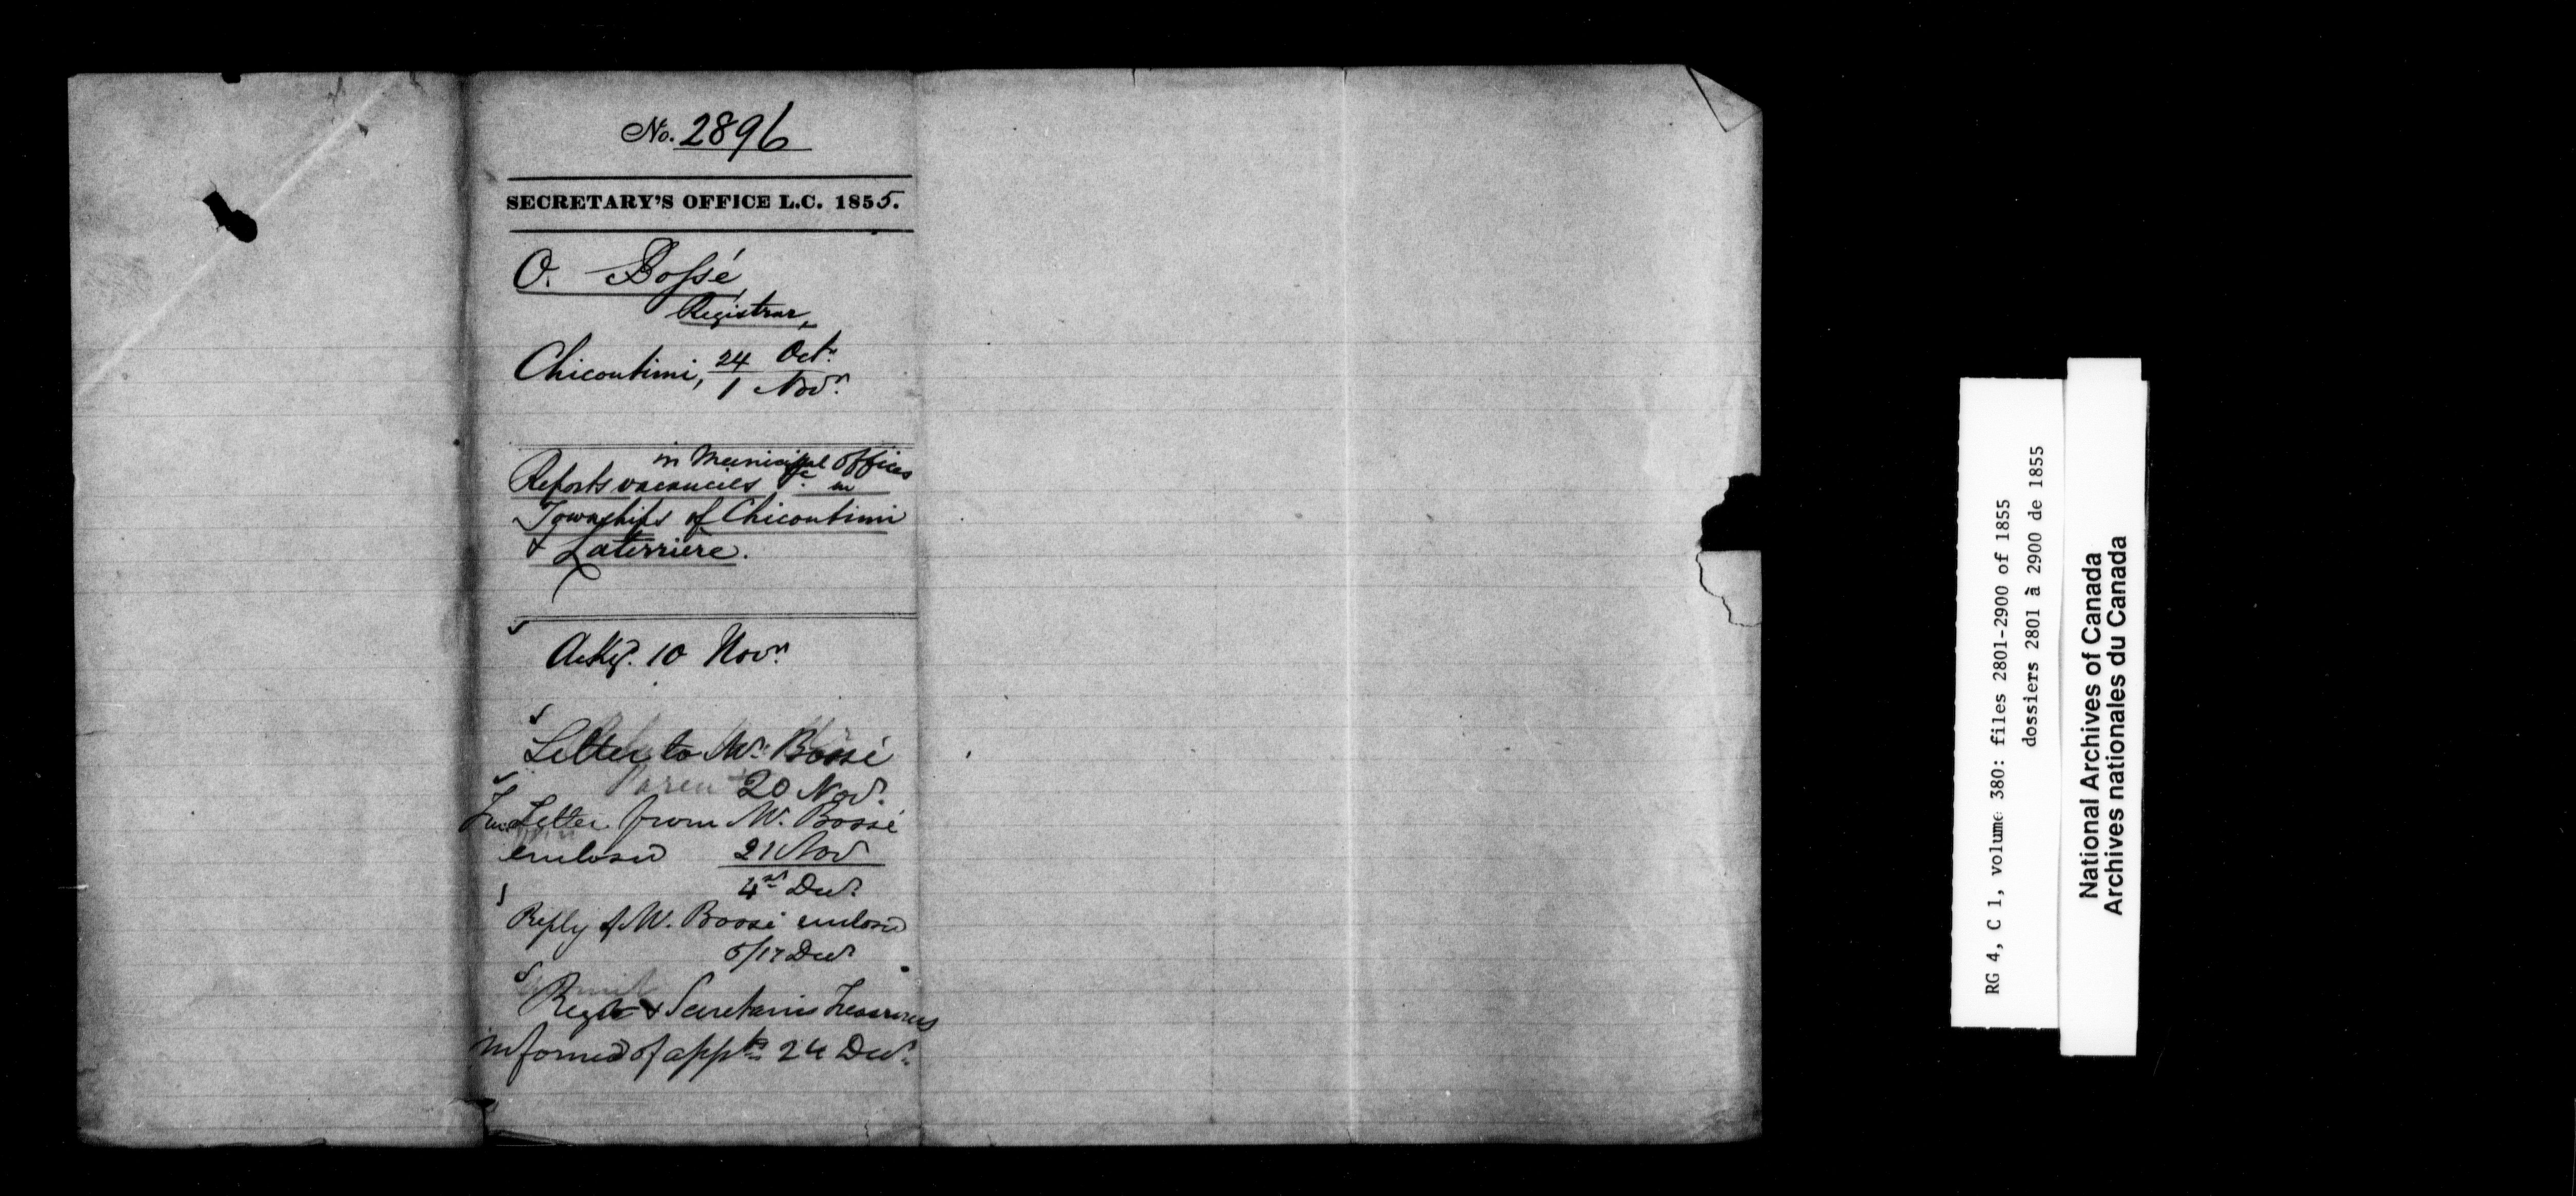 No. 2896
SECRETARY'S OFFICE L.C. 1855.
O. Bossé,
Registrar,
Chicoutimi, 24 Octr.
1 Novr.
in Municipal offices
Reports vacancies in
Townships of Chicoutimi
& Laterrière.
Ackd. 10 Novr.
Letter to Mr. Bossé
20 Novr.
Letter from M. Bossé
enclosed 21 Nov
4 Decr.
Reply of M. Bossé enclosed
5/17 Decr.
Regr. & Secretaries Treasurers
informed of appts 24 Decr.
RG 4, C 1, volume 380: files 2801-2900 of 1855
dossiers 2801 à 2900 de 1855
National Archives of Canada
Archives nationales du Canada